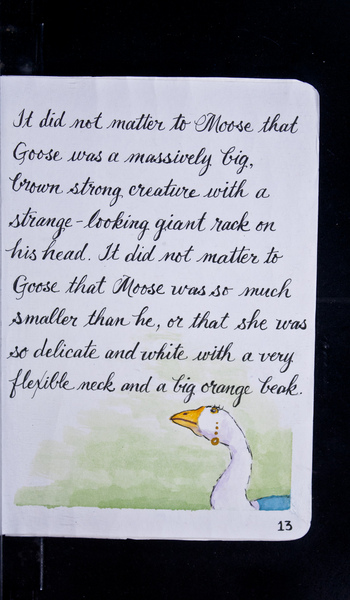 It did not matter to Moose that
Goose was a massively big,
brown strong creature with a
strange-looking giant rack on
his head. It did not matter to
Goose that Moose was so much
smaller than he, or that she was
so delicate and white with a very
flexible neck and a big orange beak.
13